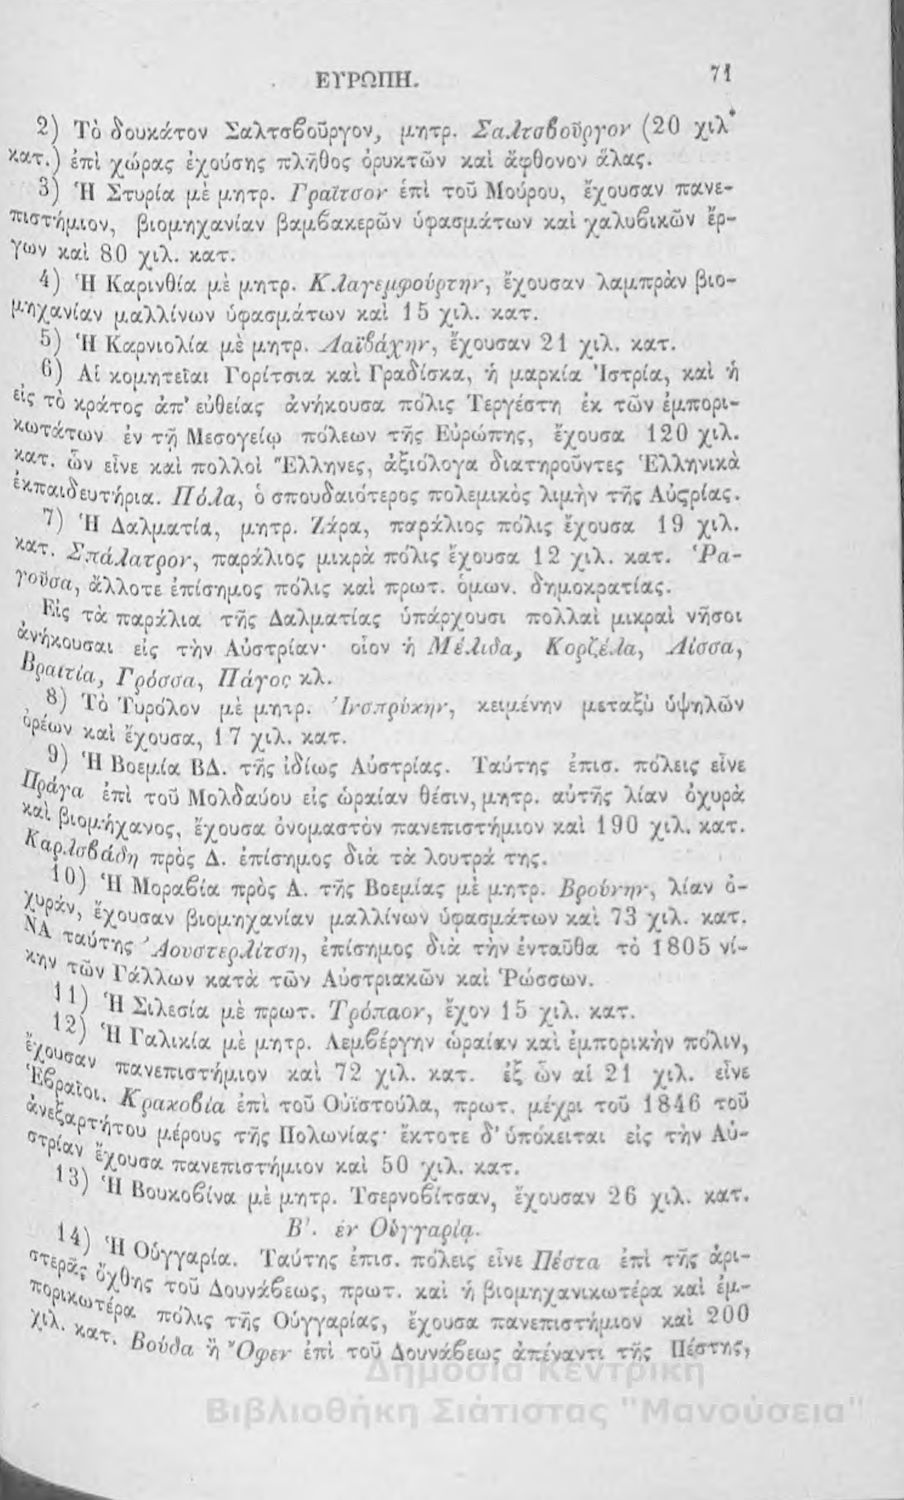 ΕΥΡΩΠΗ. 71
2) Τὸ δουκάτον Σαλτσϐοῦργον, μητρ. Σαλτσϐοῦργον (20 χιλ
κατ.) ἐπὶ χώρας ἐχούσης πλῆθος ὀρυκτῶν καὶ ἄφθονον ἅλας.
3) Ἡ Στυρία μὲ μητρ. Γραῖτσον ἐπὶ τοῦ Μούρου, ἔχουσαν πανε-
πιστήμιον, βιομηχανίαν βαμϐακερῶν ὑφασμάτων καὶ χαλυϐικῶν ἔρ-
γων καὶ 80 χιλ. κατ.
4) Ἡ Καρινθία μὲ μητρ. Κλαγεμφούρτην, ἔχουσαν λαμπρὰν βιο-
μηχανίαν μαλλίνων ὑφασμάτων καὶ 15 χιλ. κατ.
5) Ἡ Καρνιολία μὲ μητρ. Λαϊϐάχην, ἔχουσαν 21 χιλ. κατ.
6) Αἱ κομητεῖαι Γορίτσια καὶ Γραδίσκα, ἡ μαρκία Ἰστρία, καὶ ἡ
εἰς τὸ κράτος ἀπ' εὐθείας ἀνήκουσα πόλις Τεργέστη ἐκ τῶν ἐμπορι-
κωτάτων ἐν τῇ Μεσογείῳ πόλεων τῆς Εὐρώπης, ἔχουσα 120 χιλ.
κατ. ὧν εἶνε καὶ πολλοὶ Ἕλληνες, ἀξιόλογα διατηροῦντες Ἑλληνικὰ
ἐκπαιδευτήρια. Πόλα, ὁ σπουδαιότερος πολεμικὸς λιμὴν τῆς Αὐςρίας.
7) Ἡ Δαλματία, μητρ. Ζάρα, παράλιος πόλις ἔχουσα 19 χιλ.
κατ. Σπάλατρον, παράλιος μικρὰ πόλις ἔχουσα 12 χιλ. κατ. Ῥα-
γοῦσα, ἄλλοτε ἐπίσημος πόλις καὶ πρωτ. ὁμων. δημοκρατίας.
Εἰς τὰ παράλια τῆς Δαλματίας ὑπάρχουσι πολλαὶ μικραὶ νῆσοι
ἀνήκουσαι εἰς τὴν Αὐστρίαν· οἷον ἡ Μέλιδα, Κορζέλα, Λίσσα,
Βρατσία, Γρόσσα, Πάγος κλ.
8) Τὸ Τυρόλον μὲ μητρ. Ἰνσπρύκην, κειμένην μεταξὺ ὑψηλῶν
ὀρέων καὶ ἔχουσα, 17 χιλ. κατ.
9) Ἡ Βοεμία ΒΔ. τῆς ἰδίως Αὐστρίας. Ταύτης ἐπισ. πόλεις εἶνε
Πράγα ἐπὶ τοῦ Μολδαύου εἰς ὡραίαν θέσιν, μητρ. αὐτῆς λίαν ὀχυρὰ
καὶ βιομήχανος, ἔχουσα ὀνομαστὸν πανεπιστήμιον καὶ 190 χιλ. κατ.
Καρλσϐάδη πρὸς Δ. ἐπίσημος διὰ τὰ λουτρά της.
10) Ἡ Μοραϐία πρὸς Α. τῆς Βοεμίας μὲ μητρ. Βρούνην, λίαν ὀ-
χυράν, ἔχουσαν βιομηχανίαν μαλλίνων ὑφασμάτων καὶ 73 χιλ. κατ.
ΝΑ ταύτης Ἀουστερλίτση, ἐπίσημος διὰ τὴν ἐνταῦθα τὸ 1805 νί-
κην τῶν Γάλλων κατὰ τῶν Αὐστριακῶν καὶ Ῥώσσων.
11) Ἡ Σιλεσία μὲ πρωτ. Τρόπαον, ἔχον 15 χιλ. κατ.
12) Ἡ Γαλικία μὲ μητρ. Λεμϐέργην ὡραίαν καὶ ἐμπορικὴν πόλιν,
ἔχουσαν πανεπιστήμιον καὶ 72 χιλ. κατ. ἐξ ὧν αἱ 21 χιλ. εἶνε
Ἑϐραῖοι. Κρακοϐία ἐπὶ τοῦ Οὐϊστούλα, πρωτ. μέχρι τοῦ 1846 τοῦ
ἀνεξαρτήτου μέρους τῆς Πολωνίας· ἔκτοτε δ' ὑπόκειται εἰς τὴν Αὐ-
στρίαν ἔχουσα πανεπιστήμιον καὶ 50 χιλ. κατ.
13) Ἡ Βουκοϐίνα μὲ μητρ. Τσερνοϐίτσαν, ἔχουσαν 26 χιλ. κατ.
Β'. ἐν Οὑγγαρίᾳ.
14) Ἡ Οὑγγαρία. Ταύτης ἐπισ. πόλεις εἶνε Πέστα ἐπὶ τῆς ἀρι-
στερᾶς ὄχθης τοῦ Δουνάϐεως, πρωτ. καὶ ἡ βιομηχανικωτέρα καὶ ἐμ-
πορικωτέρα πόλις τῆς Οὑγγαρίας, ἔχουσα πανεπιστήμιον καὶ 200
χιλ. κατ. Βούδα ἢ Ὄφεν ἐπὶ τοῦ Δουνάϐεως ἀπέναντι τῆς Πέστης,
Δημόσια Κεντρική
Βιβλιοθήκη Σιάτιστας "Μανούσεια"